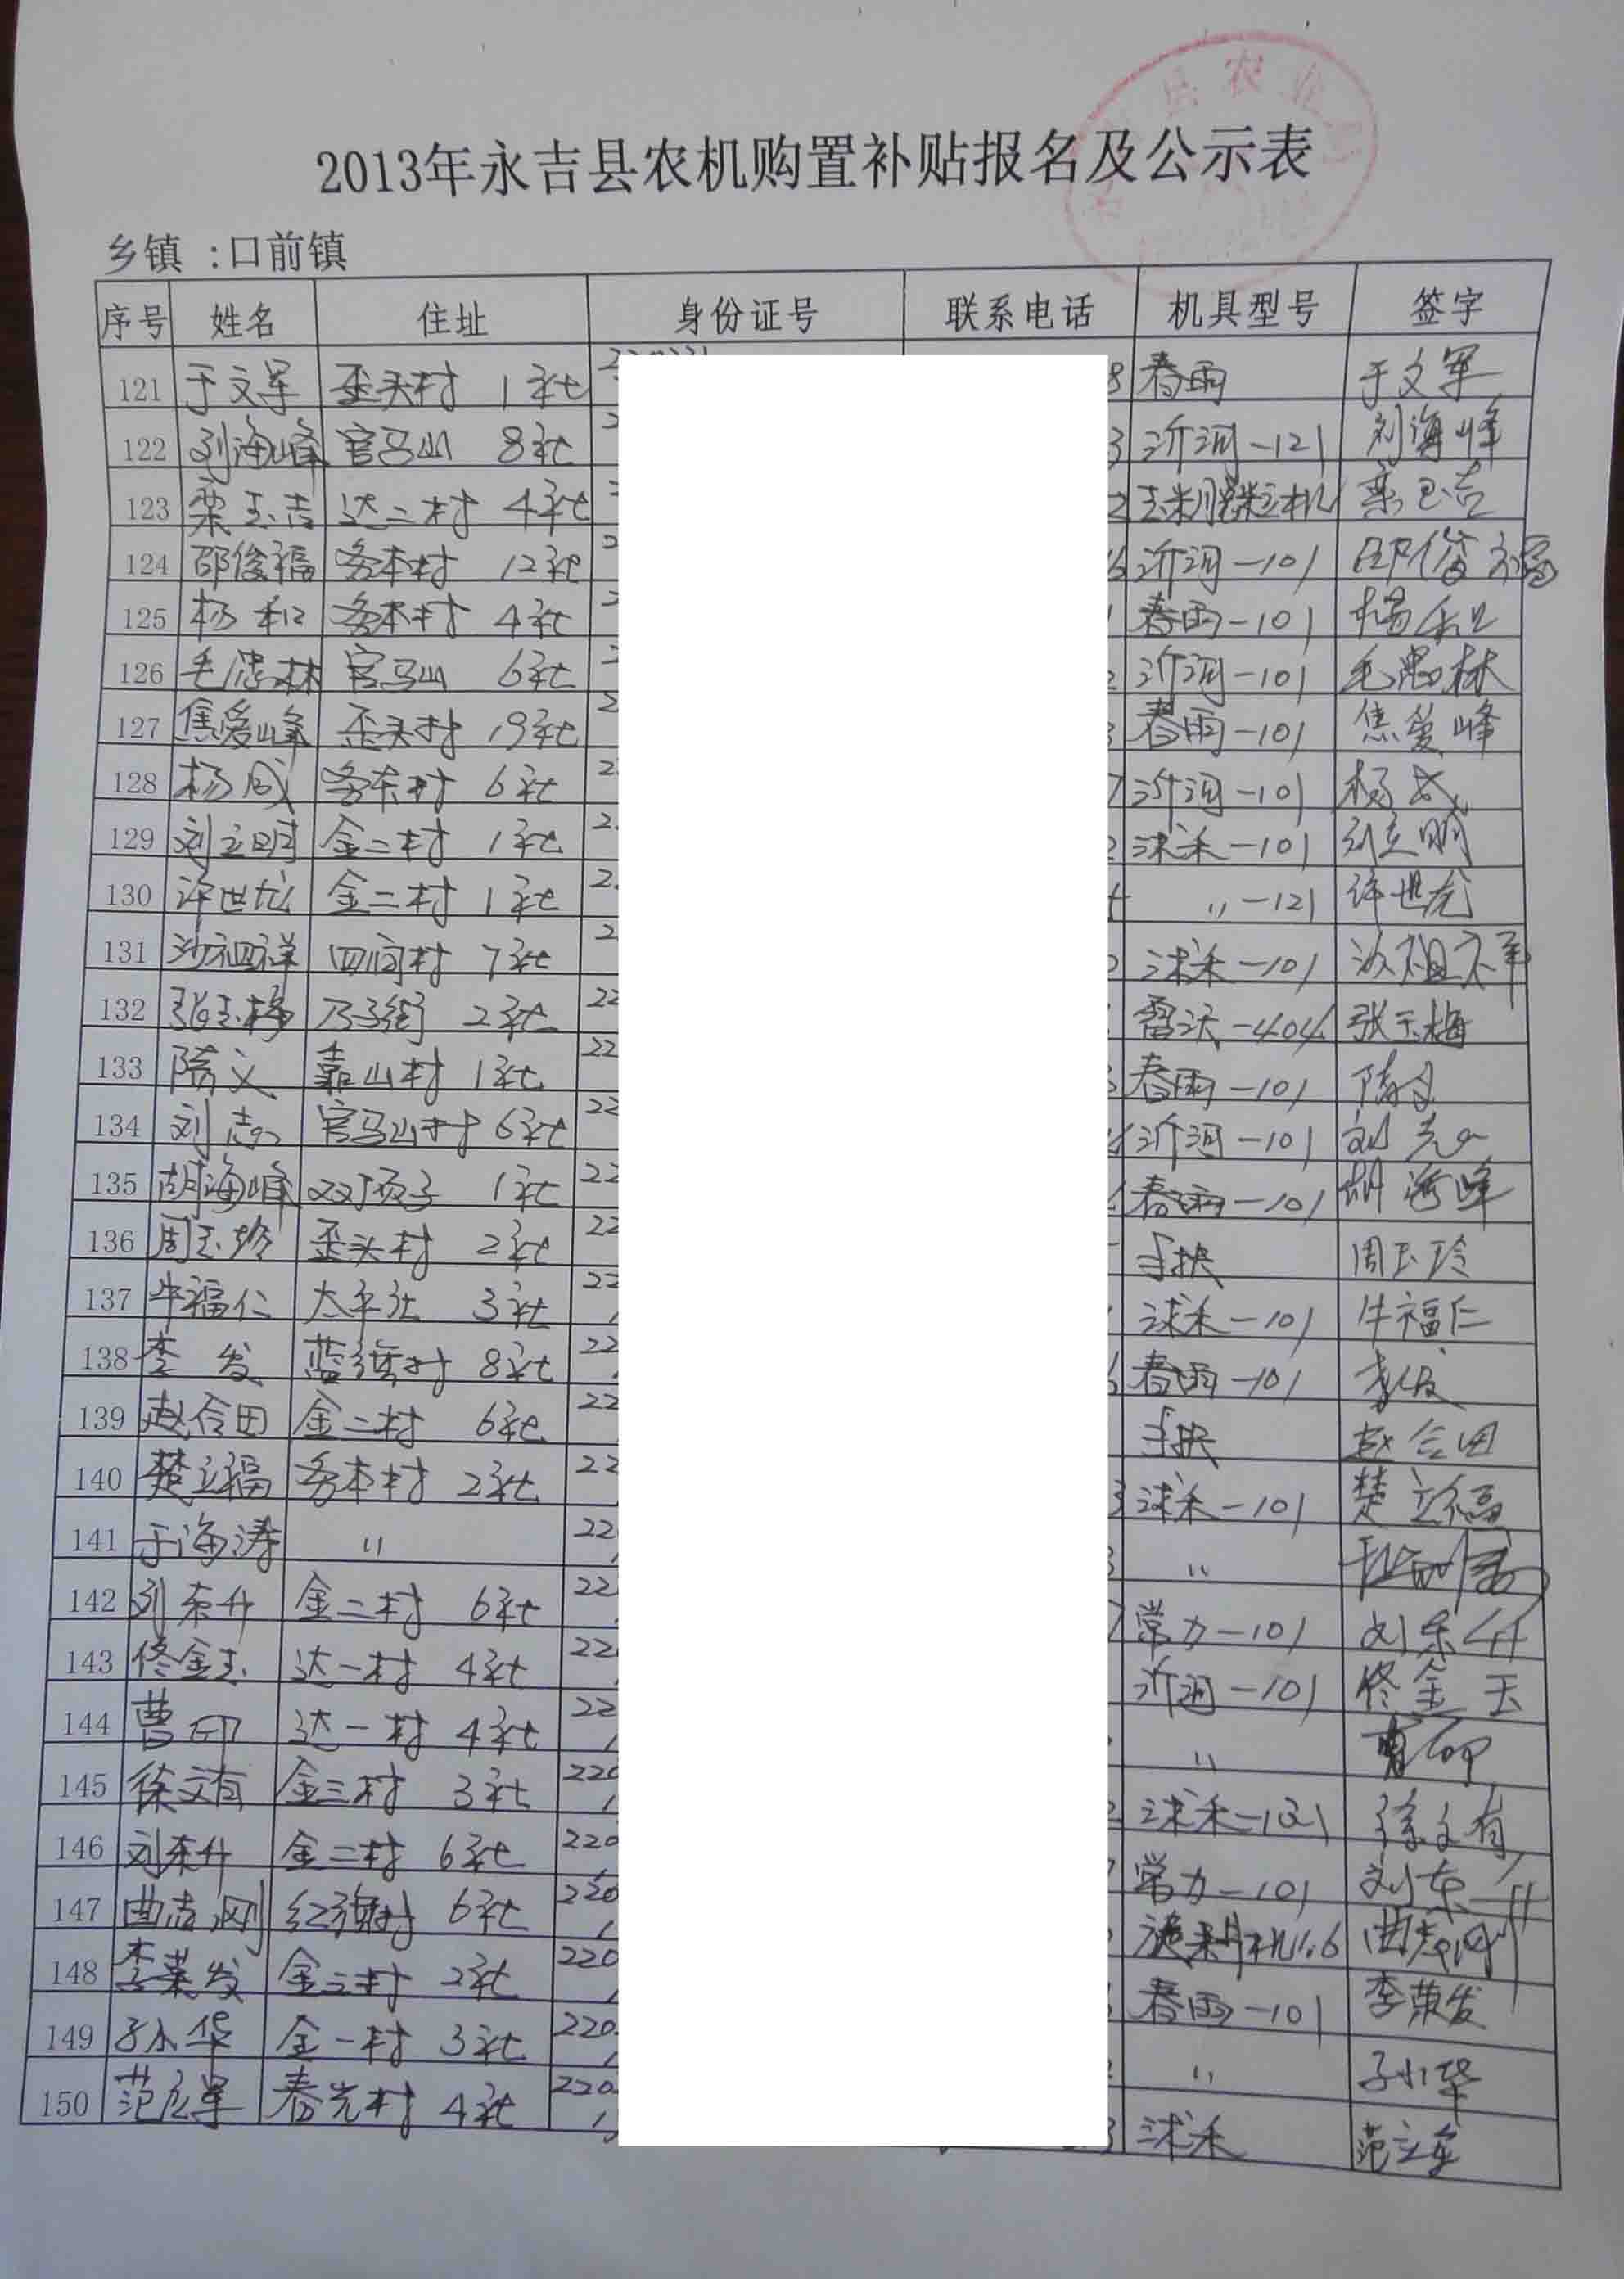 2013年永吉县农机购置补贴报名及公示表
乡镇 :口前镇
序号 姓名 住址 身份证号 联系电话 机具型号 签字
121 于文军 歪头村 1社 8 春雨 于文军
122 刘海峰 官马山 8社 3 沂河-121 刘海峰
123 栾玉吉 达二村 4社 2 玉米脱粒机 栾玉吉
124 邵俊福 务本村 12社 沂河-101 邵俊福
125 杨和 务本村 4社 春雨-101 杨和
126 毛忠林 官马山 6社 沂河-101 毛忠林
127 焦爱峰 歪头村 19社 春雨-101 焦爱峰
128 杨成 务本村 6社 沂河-101 杨成
129 刘立明 金二村 1社 沭禾-101 刘立明
130 许世龙 金二村 1社 〃-121 许世龙
131 沙祖祥 四间村 7社 沭禾-101 沙祖祥
132 张玉梅 乃子街 2社 22 雷沃-404 张玉梅
133 隋义 嘉山村 1社 22 春雨-101 隋义
134 刘志 官马山村 6社 22 沂河-101 刘志
135 胡海峰 双顶子 1社 22 春雨-101 胡海峰
136 周玉玲 歪头村 2社 22 手扶 周玉玲
137 牛福仁 太平社 3社 22 沭禾-101 牛福仁
138 李发 蓝旗村 8社 22 春雨-101 李发
139 赵合田 金二村 6社 22 手扶 赵合田
140 楚立福 务本村 2社 22 3 沭禾-101 楚立福
141 于海涛 〃 22 〃
142 刘东升 金二村 6社 22 常力-101 刘东升
143 佟金玉 达一村 4社 22 沂河-101 佟金玉
144 曹印 达一村 4社 22 〃 曹印
145 徐文有 金三村 3社 220 沭禾-121 徐文有
146 刘东升 金二村 6社 220 常力-101 刘东升
147 曲志刚 红旗村 6社 220 曲志刚
148 李荣发 金三村 2社 220 春雨-101 李荣发
149 孙华 金一村 3社 220 〃 孙华
150 范立军 春光村 4社 220 3 沭禾 范立军